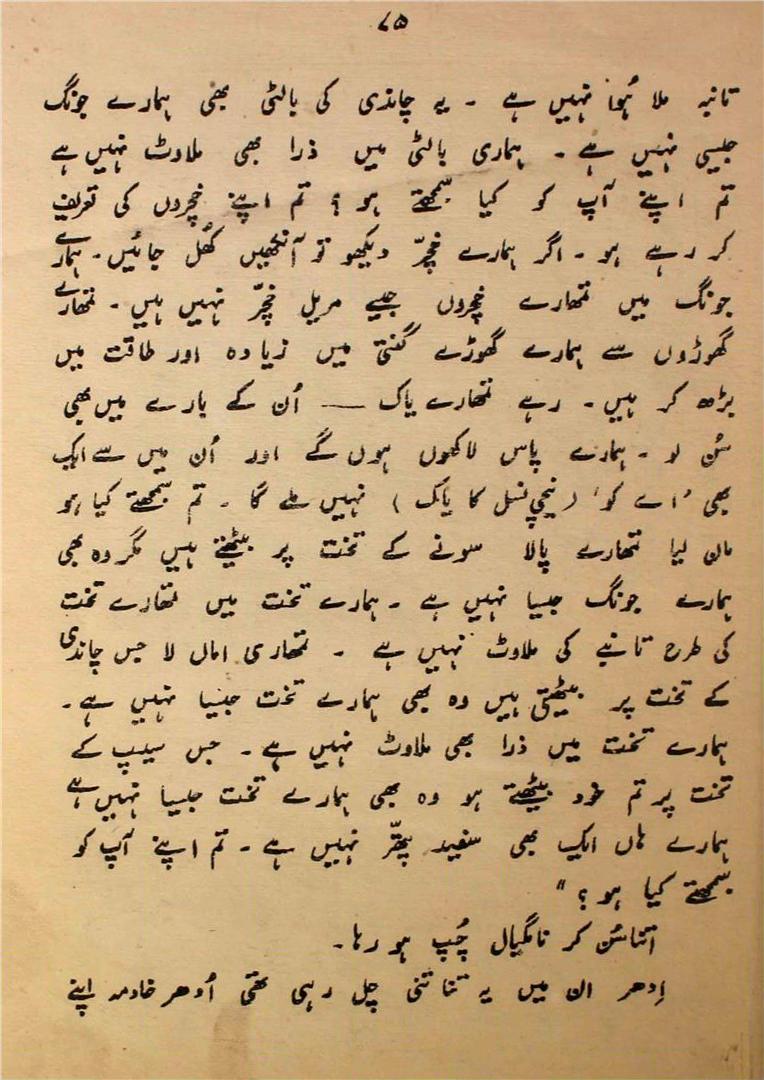 ۷۵
تانبہ ملا ہُوا نہیں ہے ۔ یہ چاندی کی بالٹی بھی ہمارے جونگ
جیسی نہیں ہے ۔ ہماری بالٹی میں ذرا بھی ملاوٹ نہیں ہے
تم اپنے آپ کو کیا سمجھتے ہو ؟ تم اپنے خچروں کی تعریف
کر رہے ہو ۔ اگر ہمارے خچّر دیکھو تو آنکھیں کھُل جائیں ۔ ہمارے
جونگ میں تمھارے خچروں جیسے مریل خچّر نہیں ہیں ۔ تمھارے
گھوڑوں سے ہمارے گھوڑے گنتی میں زیادہ اور طاقت میں
بڑھ کر ہیں ۔ رہے تمھارے یاک ـــــ اُن کے بارے میں بھی
سُن لو ۔ ہمارے پاس لاکھوں ہوں گے اور اُن میں سے ایک
بھی ' اے کو ' ( نیچی نسل کا یاک ) نہیں ملے گا ۔ تم سمجھتے کیا ہو
مان لیا تمھارے پالا سونے کے تخت پر بیٹھتے ہیں مگر وہ بھی
ہمارے جونگ جیسا نہیں ہے ۔ ہمارے تخت میں تمھارے تخت
کی طرح تانبے کی ملاوٹ نہیں ہے ۔ تمھاری اماں لا جس چاندی
کے تخت پر بیٹھتی ہیں وہ بھی ہمارے تخت جیسا نہیں ہے ۔
ہمارے تخت میں ذرا بھی ملاوٹ نہیں ہے ۔ جس سیپ کے
تخت پر تم خود بیٹھتے ہو وہ بھی ہمارے تخت جیسا نہیں ہے
ہمارے ہاں ایک بھی سفید پتھّر نہیں ہے ۔ تم اپنے آپ کو
سمجھتے کیا ہو ؟ "
اتنا سُن کر تانگیال چُپ ہو رہا ۔
اِدھر ان میں یہ تناتنی چل رہی تھی اُدھر خادمہ اپنے